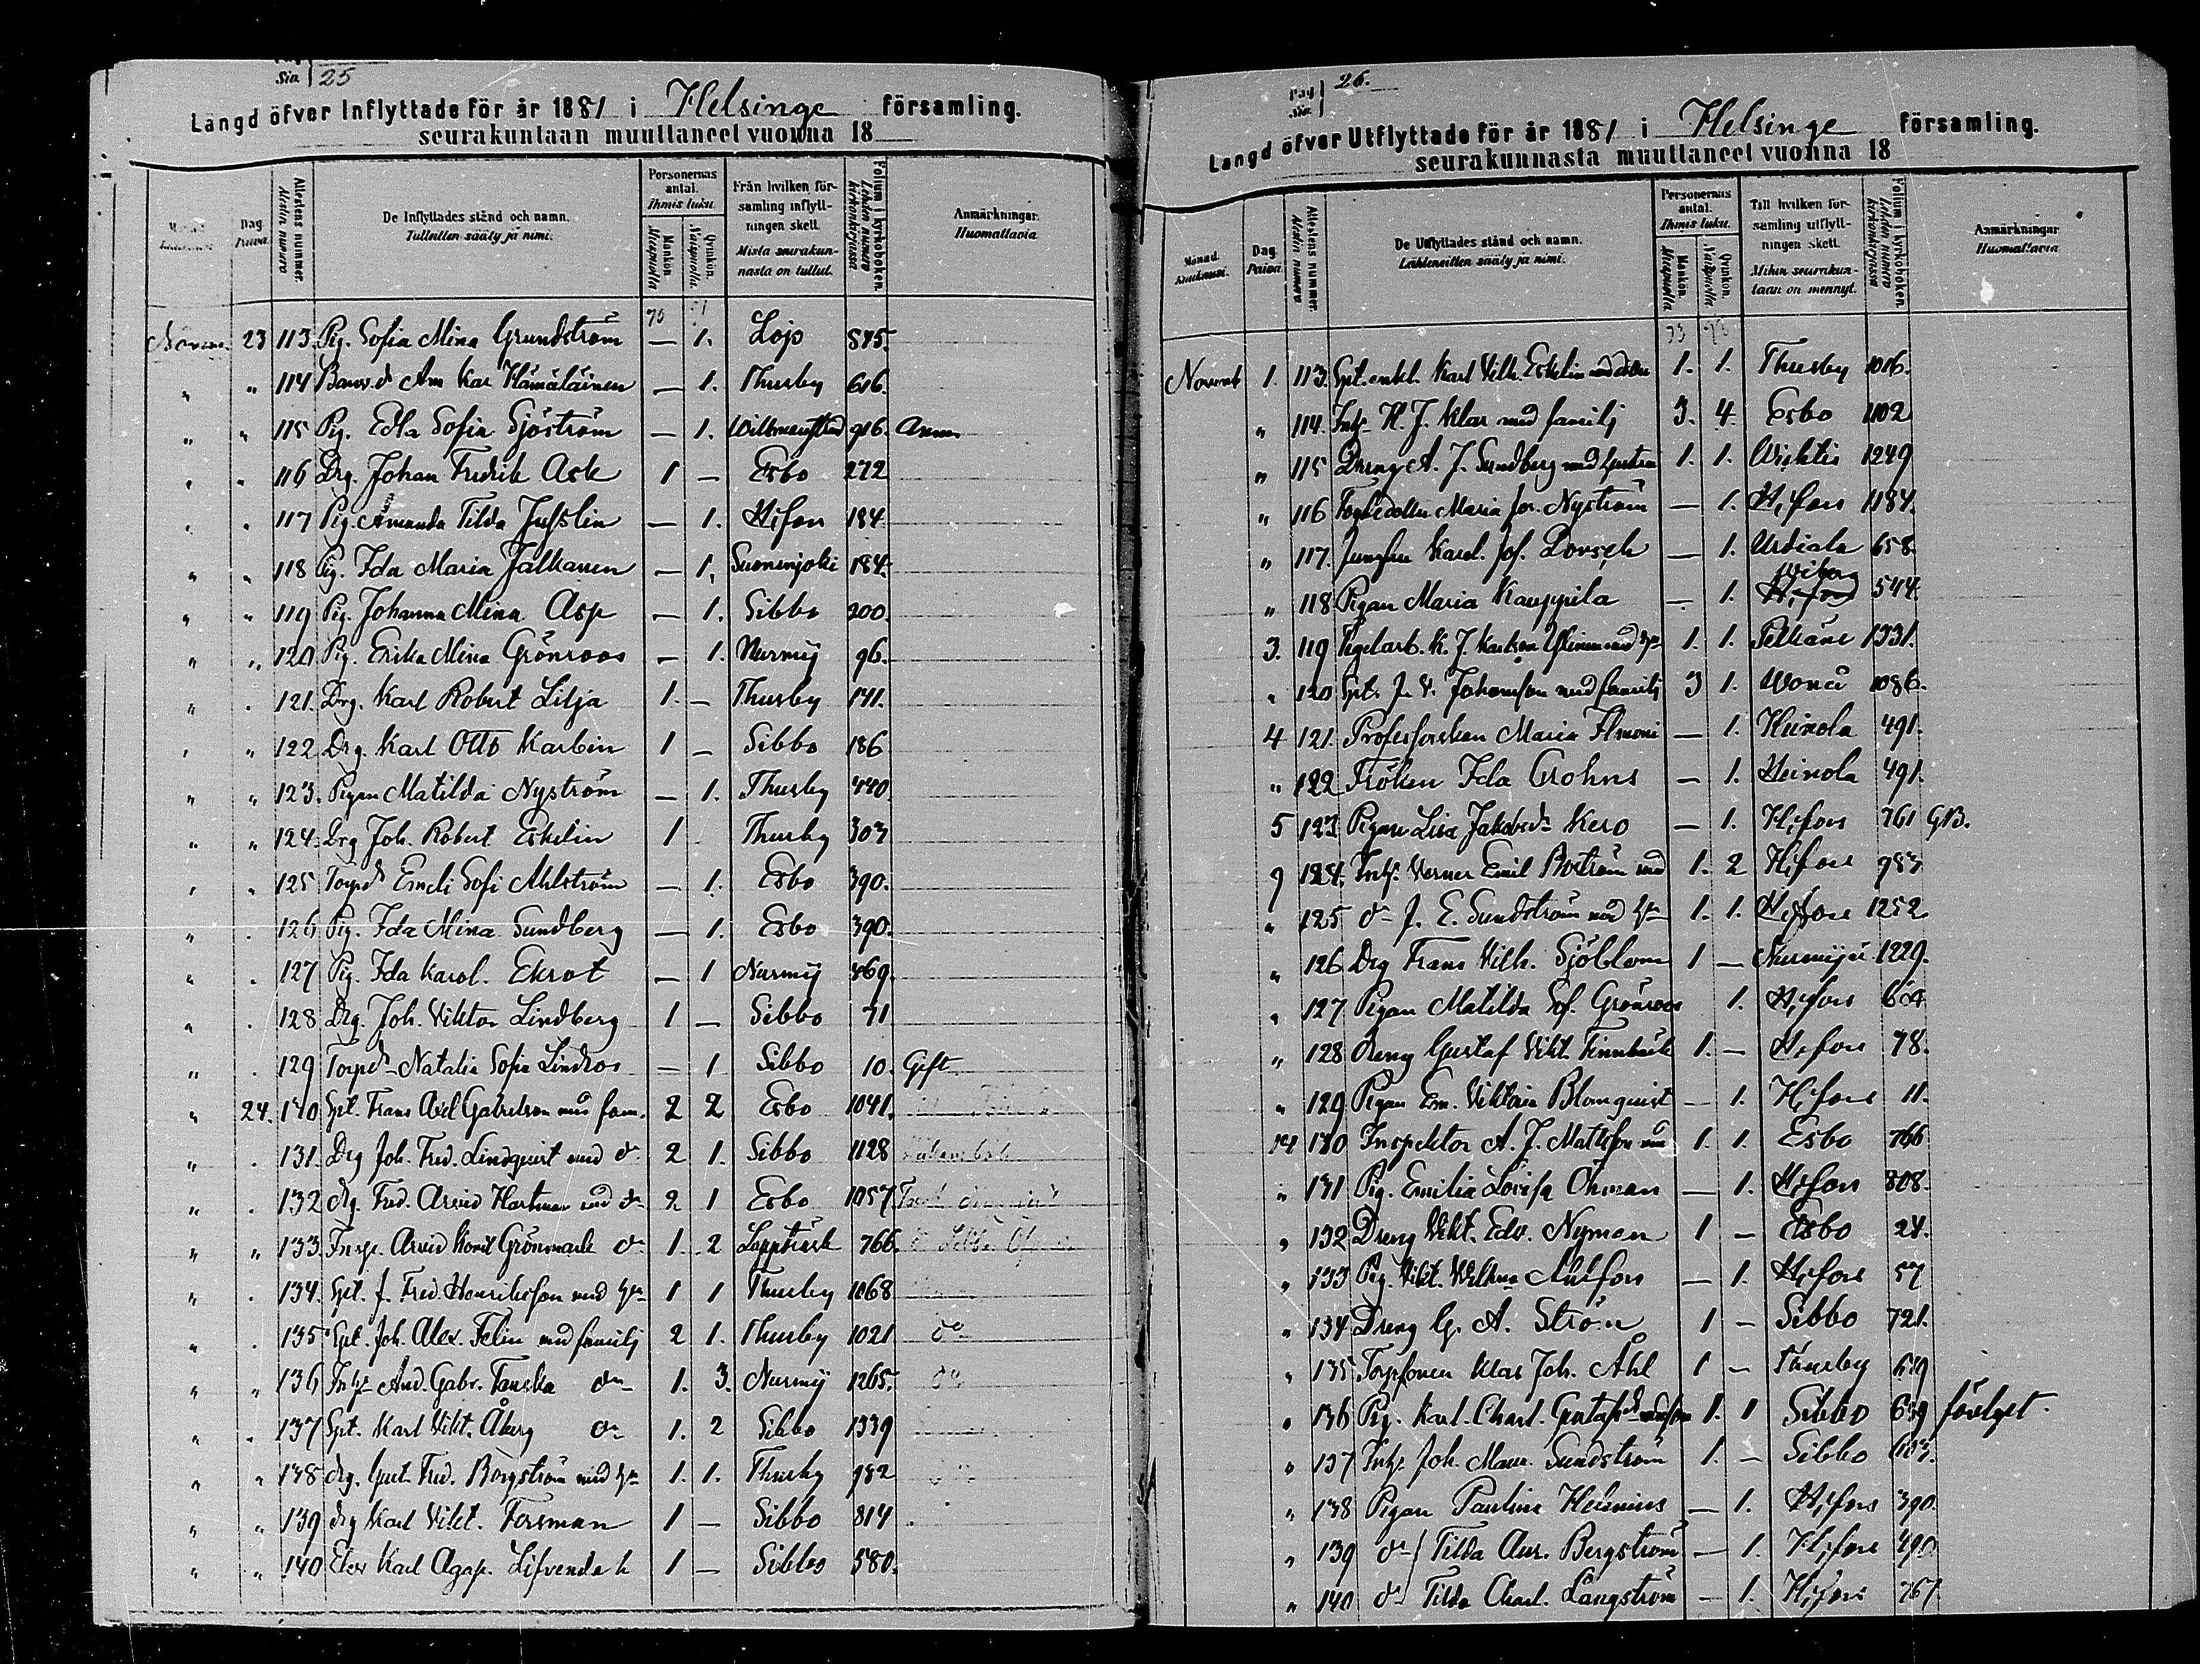 Siv. 25
Längd öfver Inflyttade för år 1881 i Helsinge församling.
seurakuntaan muuttaneet vuonna 18
Dag. Päivä.
Attestens nummer. Alestin numero
De Inflyttades stånd och namn. Tulleitten sääty ja nimi.
Personernas antal. Ihmis luku.
Mankön. Miespuolia
Qvinkön. Naispuolia.
Från hvilken församling inflyttningen skett. Mistä seurakunnasta on tullut.
Folium i kyrkoboken. Lehden numero kirkonkirjassa
Anmärkningar. Huomattavia
Novem. 23 113 Pig. Sofia Mina Grundström — 1. Lojo 845.
" " 114 Ham̈äläinen — 1. Thusby 616.
" " 115 Pig. Edla Sofia Sjöström — 1. Willmanstrand 916.
" " 116 Drg. Johan Fredrik Ask 1 — Esbo 272
" " 117 Pig. Amanda Tilda Jusslin — 1. H:fors 184.
" " 118 Pig. Ida Maria Jalkanen — 1. Suonenjoki 184.
" " 119 Pig. Johanna Mina Asp — 1. Sibbo 200.
" " 120 Pig. Erika Mina Grönroos — 1. Nurmij 96.
" " 121. Drg. Karl Robert Lilja 1. — Thusby 141.
" " 122 Drg. Karl Otto Karbin 1 — Sibbo 186
" " 123. Pigan Matilda Nyström — 1. Thusby 440.
" " 124. Drg Joh. Robert Eskelin 1 Thusby 303
" " 125 Torpd. Emeli Sofi Ahlström — 1. Esbo 390.
" " 126 Pig. Ida Mina Sundberg — 1. Esbo 390.
" " 127 Pig. Ida Karol. Ekrot — 1 Nurmij 469.
" " 128 Drg. Joh. Viktor Lindberg 1 — Sibbo 71
" " 129 Torpd. Natalia Sofia Lindros — 1 Sibbo 10. Gift
" 24. 130 Spt. Frans Abel Gabrielson med fam. 2 2 Esbo 1041.
" " 131. Drg Joh. Fred. Lindqvist med do 2 1. Sibbo 1128
" " 132 drg. Fred. Arvid Hartman med do 2 1 Esbo 1057
" " 133. Insp. Arvid Grönmark do 1. 2 Lappträsk 766.
" " 134. Spt. J. Fred. Henriksson med hu 1 1 Thusby 1068
" " 135 Spt. Joh. Alex. Felin med familj 2 1. Thusby 1021 do
" " 136 Inh. And. Gabr. Tanska do 1. 3. Nurmij 1265. do
" " 137 Spt. Karl Vikt. Åberg do 1. 2 Sibbo 1339
" " 138 drg. Gust. Fred. Borgström med hu 1. 1. Thusby 982
" " 139 drg Karl Vikt. Forsman 1 — Sibbo 814
" " 140 Karl Agap. Lifvendah 1 — Sibbo 580.
Pag Siv. 26.
Längd öfver Utflyttade för år 1881 i Helsinge församling.
seurakunnasta muuttaneet vuonna 18
Månad. Kuukausi.
Dag. Päivä
Attestens nummer. Alestin numero
De Utflyttades stånd och namn. Lähteneitten sääty ja nimi.
Personernas antal. Ihmis luku.
Mankön. Miespuolia
Qvinkön. Naispuolia
Till hvilken församling utflyttningen skett. Mihin seurakuntaan on mennyt.
Folium i kyrkoboken. Lehden numero kirkonkirjassa
Anmärkningar Huomattavia
Novemb 1. 113. Spt. enkl. Karl Vilh. Eskelin med dotter 1. 1. Thusby 1016.
" 114. Inh. H. J. Klar med familj 3. 4. Esbo 1102
" 115 Dreng A. J. Sundberg med hustru 1. 1. Wichtis 1249
" 116 Maria Jos. Nyström — 1. H:fors 1184.
" 117. Jungfru Karol. Jos. Dorsch — 1. Urdiala 658.
" 118 Pigan Maria Kauppila — 1. Wiborg 544.
3. 119 Tegelarb. K. J. Karlson med hu 1. 1. Pelkäne 1331.
" 120 Spt. J. V. Johansson med familj 3 1. 1086.
4 121. Professorskan Maria Ilmoni — 1. Heinola 491.
" 122 Fröken Ida Crohns — 1. Heinola 491.
5 123 Pigan Lisa Jakobsd. Kero — 1. H:fors 761 GB.
9 124. Inh. Verner Emil Boström med 1. 2 H:fors 983
" 125 do J. E. Sundström med hu 1. 1. H:fors 1252.
" 126 Drg Frans Vilh. Sjöblom 1 — Nurmijä 1229.
" 127 Pigan Matilda Sof. Grönroos 1. H:fors 604
" 128 dreng Gustaf Vikt. Finnbäck 1. — H:fors 78.
" 129 Pigan Em. Viktoria Blomqvist — 1. H:fors 11.
14 130 Inspektor A. J. Mattsson med 1. 1. Esbo 766
" 131 Pig. Emilia Lovisa Öhman — 1. H:fors 808.
" 132 Dreng Vikt. Edv. Nyman 1 — Esbo 24.
" 133 Pig. Vikt. Vilhma Ahlfors — 1. H:fors 57
" 134 Dreng G. A. Ström 1 — Sibbo 721.
" 135 Torpsonen Klas Joh. Åhl 1 — Thusby 619
" 136 Pig. Karl. Charl. Gustafsd. med son 1. 1 Sibbo 639
" 137 Inh. Joh. Maur. Sundström 1. — Sibbo 603.
" 138 Pigan Paulina Helenius — 1. H:fors 390.
" 139 do Tilda Aur. Bergström — 1. H:fors 490
" 140 do Tilda Charl. Långström — 1. H:fors 767.